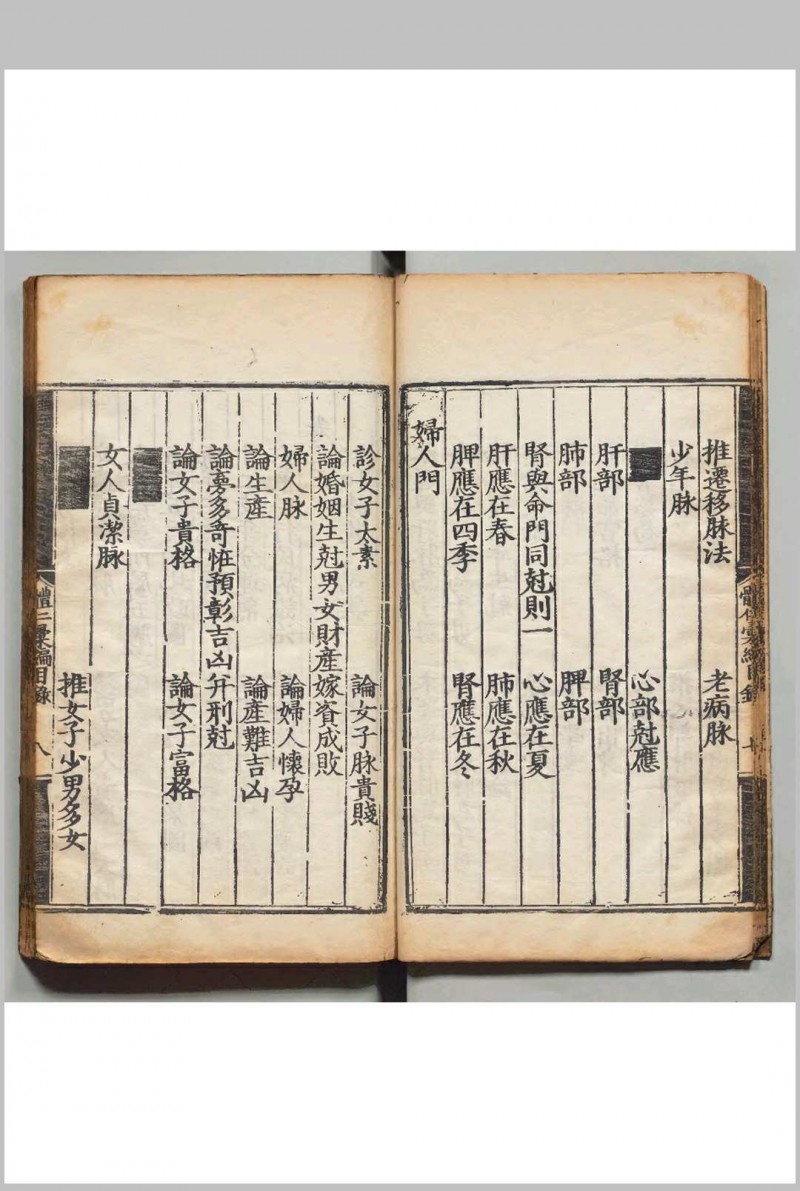 推遷移脉法　老病脉
少年脉
■　心部尅應
肝部　腎部
肺部　脾部
腎與命門同尅則一　心應在夏
肝應在春　肺應在秋
脾應在四季　腎應在冬
婦人門
診女子太素　論女子脉貴賤
論婚姻生尅男女財產嫁資成敗
婦人脉　論婦人懷孕
論生產　論產難吉凶
論夢多奇恠預彰吉凶并刑尅
論女子貴格　論女子富格
■
女人貞潔脉
■　推女子少男多女
體仁彙編目錄　八